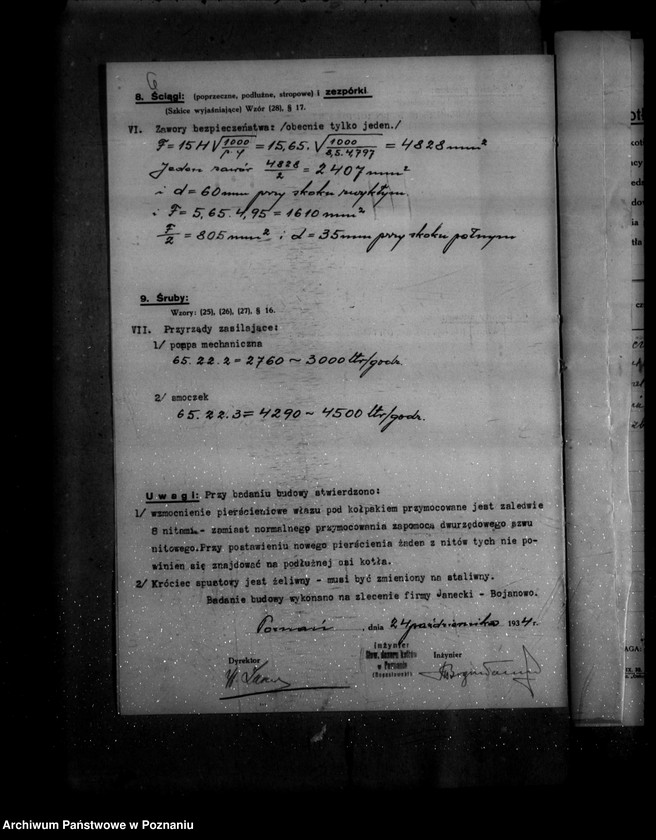 6
8. Ściągi: (poprzeczne, podłużne, stropowe) i zezpórki
(Szkice wyjaśniające) Wzór (28), § 17.
VI. Zawory bezpieczeństwa: /obecnie tylko jeden./
F = 15 H √1000/p.γ = 15,65. √1000/8,5.4,797 = 4828 mm²
Jeden zawór 4828/2 = 2407 mm²
i d = 60 mm przy skoku zwykłym.
i F = 5,65.4,95 = 1610 mm²
F/2 = 805 mm² i d = 35 mm przy skoku pełnym
9. Śruby:
Wzory: (25), (26), (27), § 16.
VII. Przyrządy zasilające:
1/ pompa mechaniczna
65.22.2 = 2760 ~ 3000 ltr/godz.
2/ smoczek
65.22.3 = 4290 ~ 4500 ltr/godz.
Uwagi: Przy badaniu budowy stwierdzono:
1/ wzmocnienie pierścieniowe włazu pod kołpakiem przymocowane jest zaledwie
8 nitami - zamiast normalnego przymocowania zapomocą dwurzędowego szwu
nitowego. Przy postawieniu nowego pierścienia żaden z nitów tych nie po-
winien się znajdować na podłużnej osi kotła.
2/ Króciec spustowy jest żeliwny - musi być zmieniony na staliwny.
Badanie budowy wykonano na zlecenie firmy Janecki - Bojanowo.
Poznań, dnia 24 października 1934 r.
Inżynier
Stow. dozoru kotłów
w Poznaniu
Dyrektor
Inżynier
Archiwum Państwowe w Poznaniu